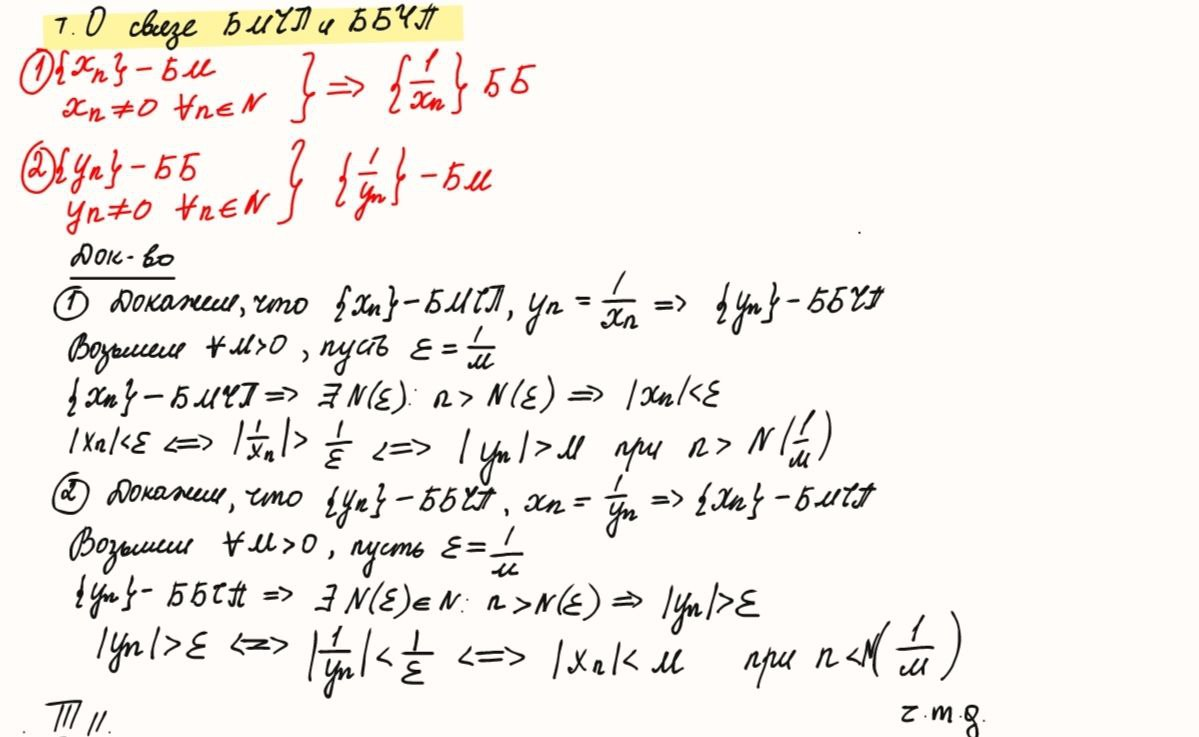 т. О связе БМЧП и ББЧП
① {xₙ} – БМ
xₙ ≠ 0 ∀n ∈ N } => {1/xₙ} ББ
② {yₙ} – ББ
yₙ ≠ 0 ∀n ∈ N } {1/yₙ} – БМ
Док-во
① Докажем, что {xₙ} – БМЧП, yₙ = 1/xₙ => {yₙ} – ББЧП
Возьмем ∀M>0, пусть ε = 1/M
{xₙ} – БМЧП => ∃ N(ε): n > N(ε) => |xₙ|<ε
|xₙ|<ε <=> |1/xₙ| > 1/ε <=> |yₙ| > M при n > N(1/M)
② Докажем, что {yₙ} – ББЧП, xₙ = 1/yₙ => {xₙ} – БМЧП
Возьмем ∀M>0, пусть ε = 1/M
{yₙ} – ББЧП => ∃ N(ε) ∈ N: n > N(ε) => |yₙ|>ε
|yₙ|>ε <=> |1/yₙ| < 1/ε <=> |xₙ| < M при n < N(1/M)
ч.т.д.